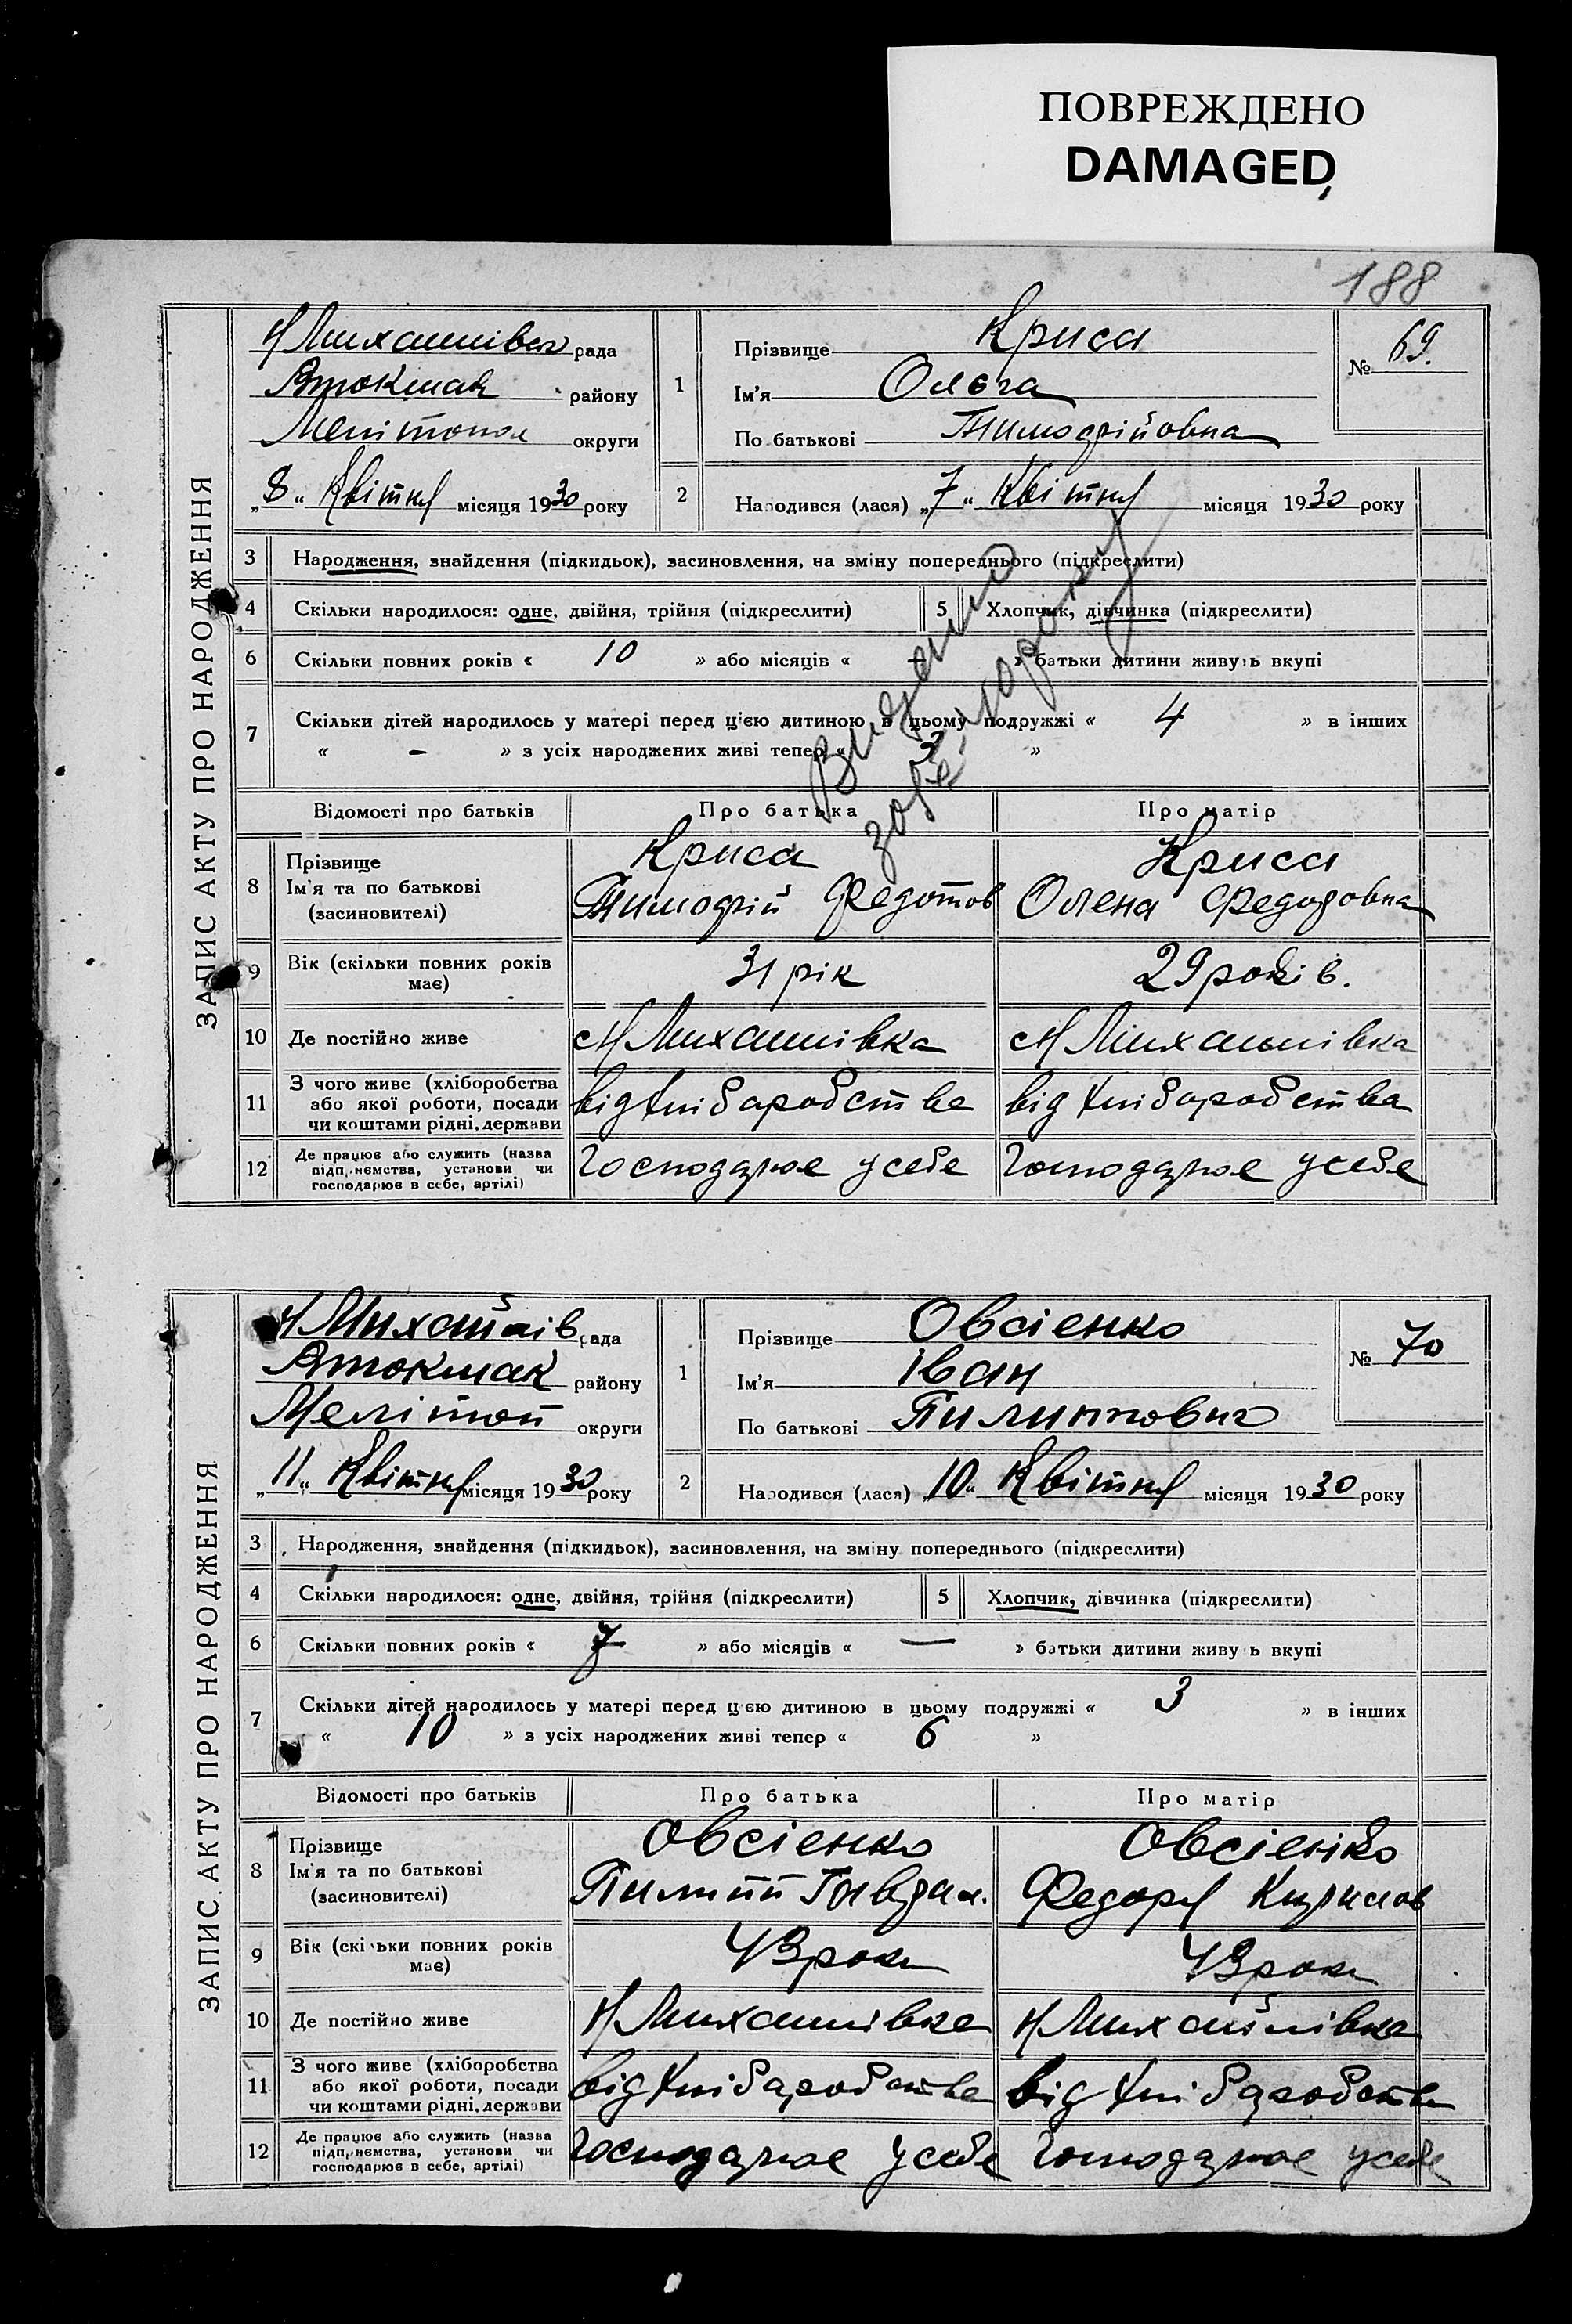 ПОВРЕЖДЕНО
DAMAGED
188
ЗАПИС АКТУ ПРО НАРОДЖЕННЯ
рада
району
Мелітопол округи
„8“ Квітня місяця 1930 року
1
Прізвище Криса
Ім'я Ольга
По батькові Тимофійовна
№ 69.
2
Народився (лася) „7“ Квітня місяця 1930 року
3 Народження, знайдення (підкидьок), засиновлення, на зміну попереднього (підкреслити)
4 Скільки народилося: одне, двійня, трійня (підкреслити) 5 Хлопчик, дівчинка (підкреслити)
6 Скільки повних років « 10 » або місяців « » батьки дитини живуть вкупі
7 Скільки дітей народилось у матері перед цією дитиною в цьому подружжі « 4 » в інших
« – » з усіх народжених живі тепер « »
Відомості про батьків Про батька Про матір
8 Прізвище Криса Криса
Ім'я та по батькові Тимофій Федотов Олена Федоровна
(засновителі)
9 Вік (скільки повних років має) 31 рік 29 років.
10 Де постійно живе Н Михайлівка Н Михайлівка
11 З чого живе (хліборобства
або якої роботи, посади від хліборобства від хліборобства
чи коштами рідні, держави
12 Де працює або служить (назва
підприємства, установи чи Господарює у себе Господарює у себе
господарює в себе, артілі)
ЗАПИС АКТУ ПРО НАРОДЖЕННЯ
Н Михайлів рада
Вток​мак району
Мелітоп округи
„11“ Квітня місяця 1930 року
1
Прізвище Овсіенко
Ім'я Іван
По батькові Пилипович
№ 70
2
Народився (лася) „10“ Квітня місяця 1930 року
3 Народження, знайдення (підкидьок), засиновлення, на зміну попереднього (підкреслити)
4 Скільки народилося: одне, двійня, трійня (підкреслити) 5 Хлопчик, дівчинка (підкреслити)
6 Скільки повних років « 7 » або місяців « — » батьки дитини живуть вкупі
7 Скільки дітей народилось у матері перед цією дитиною в цьому подружжі « 3 » в інших
« 10 » з усіх народжених живі тепер « 6 »
Відомості про батьків Про батька Про матір
8 Прізвище Овсіенко Овсіенко
Ім'я та по батькові Пилип Федора Кирилов
(засновителі)
9 Вік (скільки повних років має) 43 роки 43 роки
10 Де постійно живе Н Михайлівка Н Михайлівка
11 З чого живе (хліборобства
або якої роботи, посади від хліборобства від хліборобства
чи коштами рідні, держави
12 Де працює або служить (назва
підприємства, установи чи Господарює у себе Господарює у себе
господарює в себе, артілі)